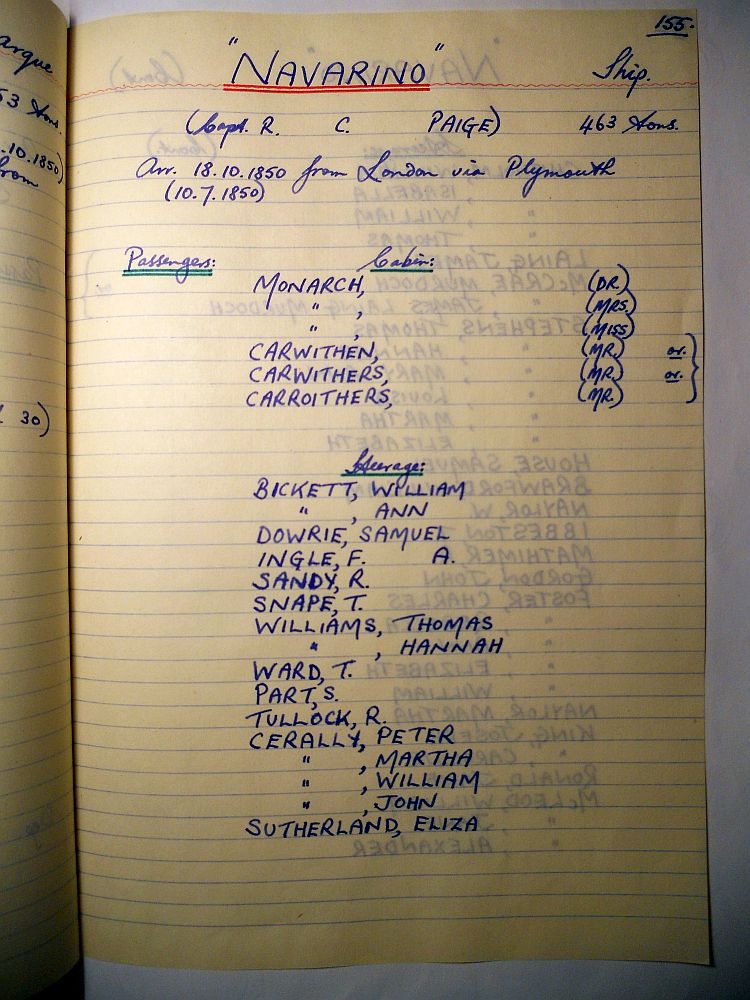 155.
"NAVARINO" Ship.
(Capt. R. C. PAIGE) 463 Tons.
Arr. 18.10.1850 from London via Plymouth
(10.7.1850)
Passengers: Cabin:
MONARCH, (DR.)
" , (MRS.)
" , (MISS)
CARWITHEN, (MR.) or.
CARWITHERS, (MR.) or.
CARROITHERS, (MR.)
Steerage:
BICKETT, WILLIAM
" , ANN
DOWRIE, SAMUEL
INGLE, F. A.
SANDY, R.
SNAPE, T.
WILLIAMS, THOMAS
" , HANNAH
WARD, T.
PART, S.
TULLOCK, R.
CERALLY, PETER
" , MARTHA
" , WILLIAM
" , JOHN
SUTHERLAND, ELIZA
arque
53 Tons.
.10.1850)
from
30)